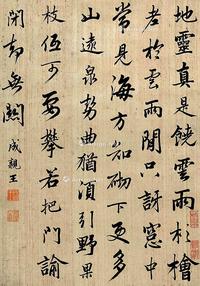 地靈真是饒雲雨杉檜
老於雲雨間只訝窓中
常見海方知砌下更多
山遠泉勢曲猶須引野果
枝低可要攀若把門論
閉却無關
成親王